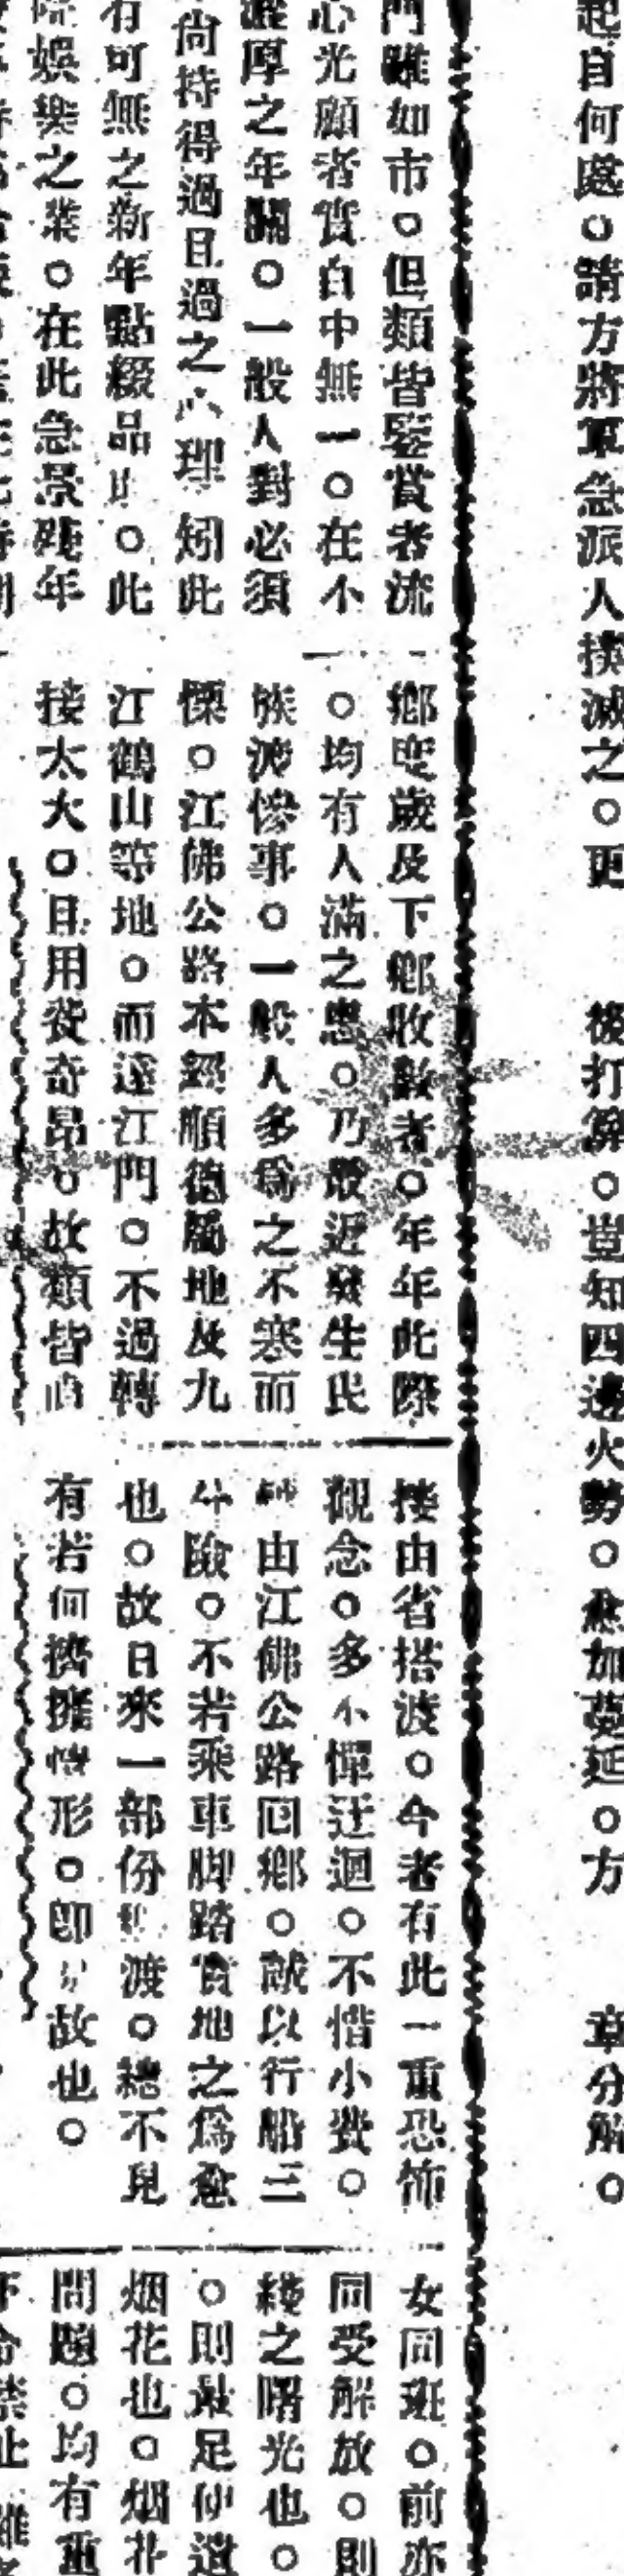 起自何處。請方將軍急派人撲滅之。更
後打算。豈知四邊火勢。愈加蔓延。方
章分解。
門雖如市。但類皆鑒賞者流
心光顧者實百中無一。在不
厚之年關。一般人對必須
尚持得過且過之 理 矧此
有可無之新年點綴品 。此
娛樂之業。在此急景殘年
鄉度歲及下鄉收數者。年年此際
。均有人滿之患。乃最近發生民
族渡慘事。一般人多為之不寒而
慄。江佛公路本經順德屬地及九
江鶴山等地。而達江門。不過轉
接太大。日用費奇昂。故類皆
接由省搭渡。今者有此一重恐怖
觀念。多不憚迂迴。不惜小費。
由江佛公路回鄉。誠以行船三
分險。不若乘車脚踏實地之為愈
也。故日來一部份 渡。總不見
有若何擠擁情形。即 故也。
女同班。前亦
同受解放。則
綫之曙光也。
。則最足 
烟花也。烟花
問題。均有重
禁止 雖